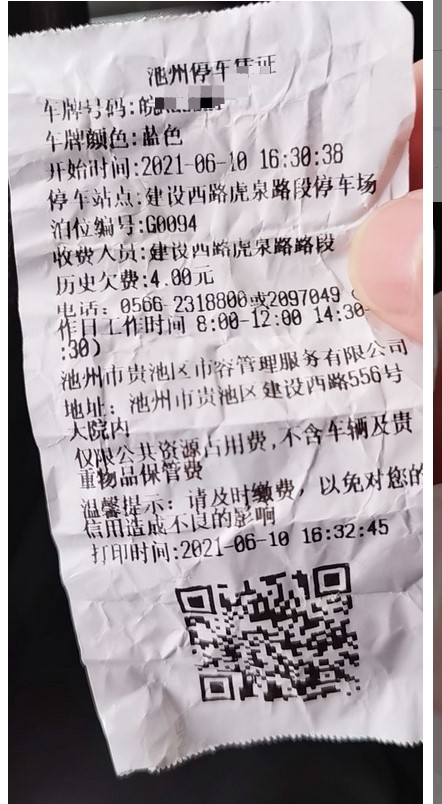 池州停车凭证
车牌号码:皖
车牌颜色:蓝色
开始时间:2021-06-10 16:30:38
停车站点:建设西路虎泉路段停车场
泊位编号:G0094
收费人员:建设西路虎泉路路段
历史欠费:4.00元
电话: 0566 2318800或2097049
作日工作时间 8:00-12:00 14:30-
:30)
池州市贵池区市容管理服务有限公司
地址: 池州市贵池区建设西路556号
大院内
仅限公共资源占用费,不含车辆及贵
重物品保管费
温馨提示: 请及时缴费, 以免对您的
信用造成不良的影响
打印时间:2021-06-10 16:32:45